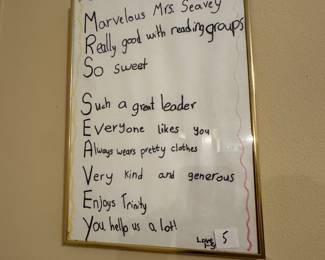 Marvelous Mrs. Seavey
Really good with reading groups
So sweet
Such a great leader
Everyone likes you
Always wears pretty clothes
Very kind and generous
Enjoys Trinity
You help us a lot!
Love
1-S
5